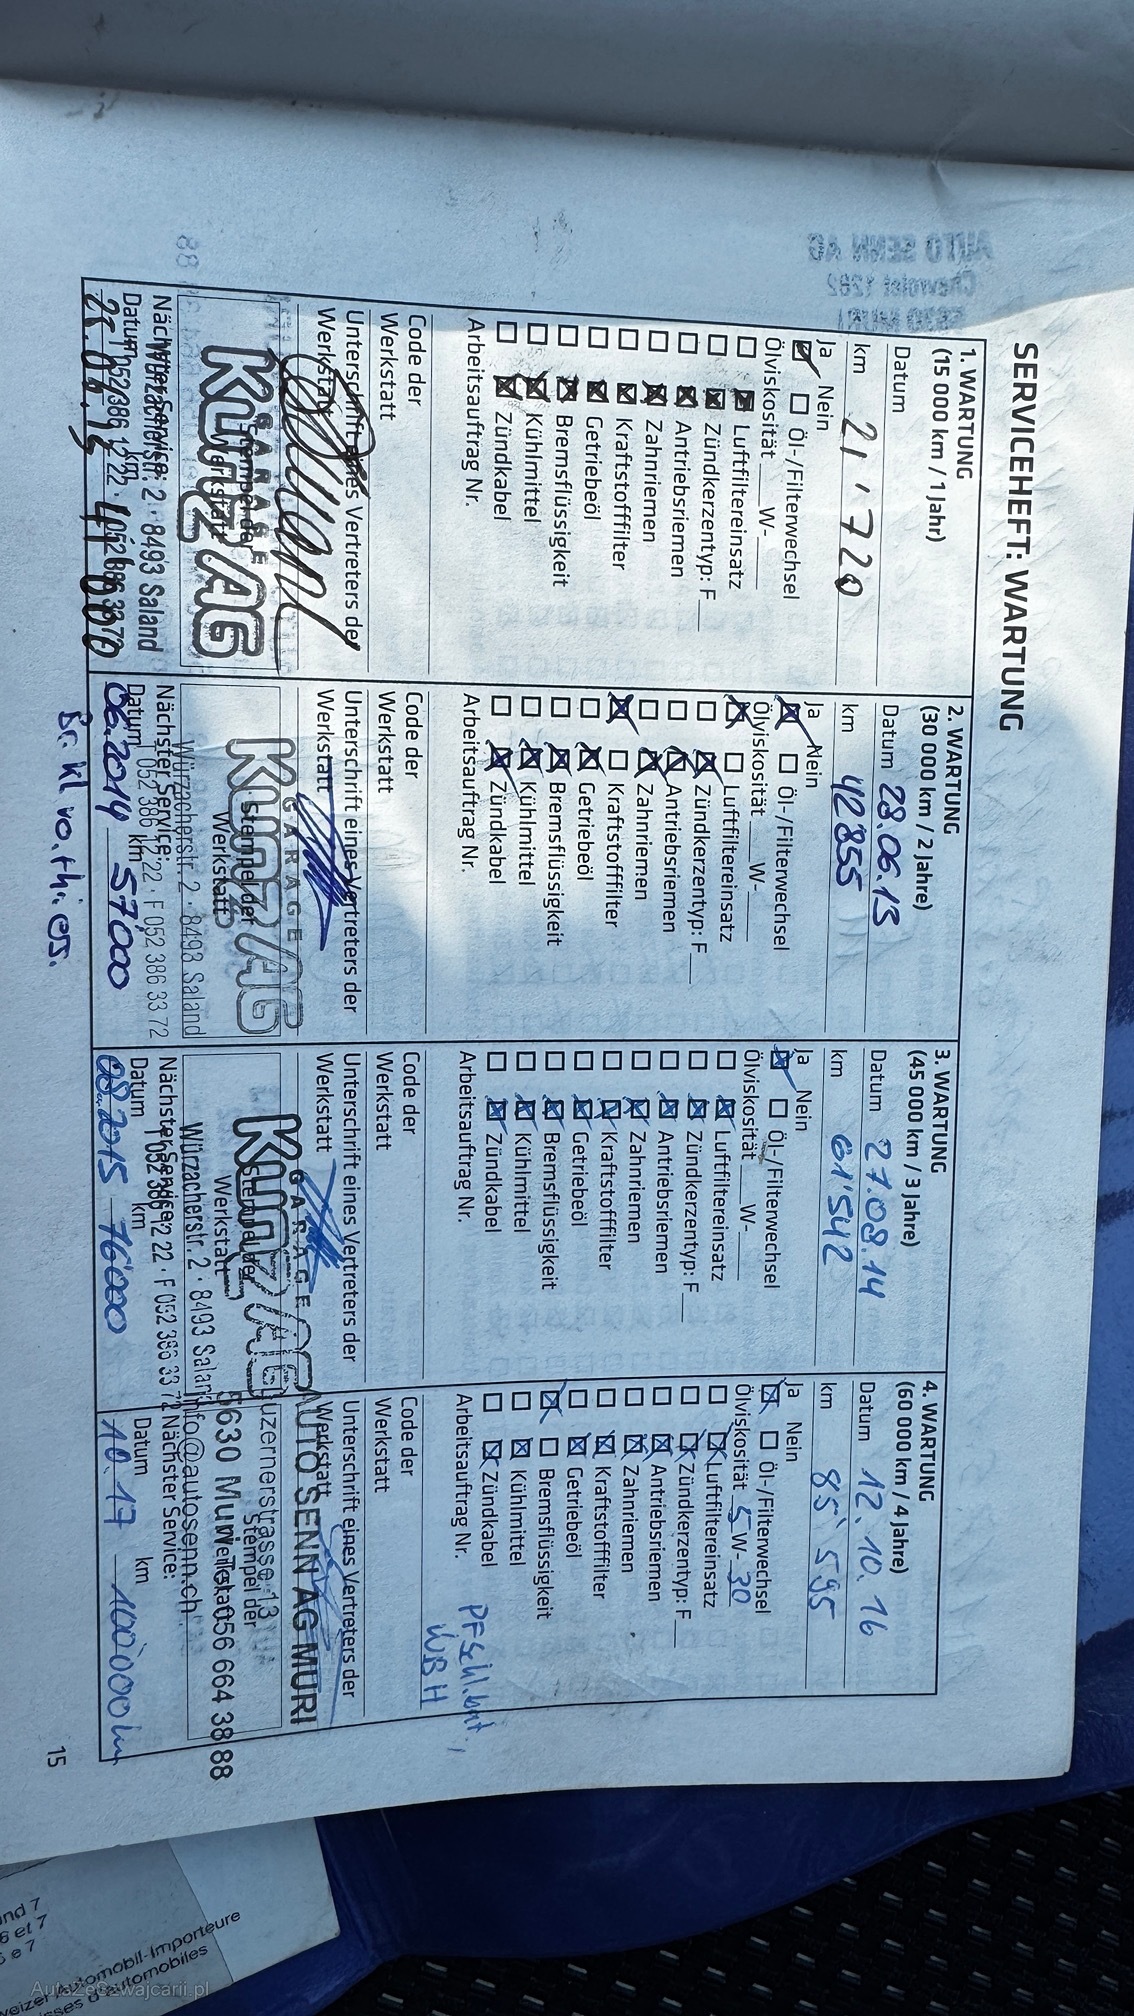 SERVICEHEFT: WARTUNG
1. WARTUNG
(15 000 km / 1 Jahr)
Datum
km 21'720
Ja Nein
Öl-/Filterwechsel
Ölviskosität W-
Luftfiltereinsatz
Zündkerzentyp: F
Antriebsriemen
Zahnriemen
Kraftstofffilter
Getriebeöl
Bremsflüssigkeit
Kühlmittel
Zündkabel
Arbeitsauftrag Nr.
Code der
Werkstatt
Unterschrift eines Vertreters der
Werkstatt
GARAGE
Kunz AG
Stempel der
Werkstatt
Würzacherstr. 2 · 8493 Saland
Nächster Service:
052 386 12 22 · F 052 386 33 72
Datum km
2. WARTUNG
(30 000 km / 2 Jahre)
Datum 28.06.13
km 42855
Ja Nein
Öl-/Filterwechsel
Ölviskosität W-
Luftfiltereinsatz
Zündkerzentyp: F
Antriebsriemen
Zahnriemen
Kraftstofffilter
Getriebeöl
Bremsflüssigkeit
Kühlmittel
Zündkabel
Arbeitsauftrag Nr.
Code der
Werkstatt
Unterschrift eines Vertreters der
Werkstatt
GARAGE
Kunz AG
Stempel der
Werkstatt
Würzacherstr. 2 · 8493 Saland
Nächster Service:
T 052 386 12 22 · F 052 386 33 72
Datum km
06.2014 57'000
3. WARTUNG
(45 000 km / 3 Jahre)
Datum 27.08.14
km 61'542
Ja Nein
Öl-/Filterwechsel
Ölviskosität W-
Luftfiltereinsatz
Zündkerzentyp: F
Antriebsriemen
Zahnriemen
Kraftstofffilter
Getriebeöl
Bremsflüssigkeit
Kühlmittel
Zündkabel
Arbeitsauftrag Nr.
Code der
Werkstatt
Unterschrift eines Vertreters der
Werkstatt
GARAGE
Kunz AG
Stempel der
Werkstatt
Würzacherstr. 2 · 8493 Saland
Nächster Service:
T 052 386 12 22 · F 052 386 33 72
Datum km
08.2015 76'000
4. WARTUNG
(60 000 km / 4 Jahre)
Datum 12.10.16
km 85'595
Ja Nein
Öl-/Filterwechsel
Ölviskosität 5 W-30
Luftfiltereinsatz
Zündkerzentyp: F
Antriebsriemen
Zahnriemen
Kraftstofffilter
Getriebeöl
Bremsflüssigkeit
Kühlmittel
Zündkabel
Arbeitsauftrag Nr.
WBH
Code der
Werkstatt
Unterschrift eines Vertreters der
Werkstatt
AUTO SENN AG MURI
Luzernerstrasse 13
Stempel der
Werkstatt
5630 Muri Tel. 056 664 38 88
info@autosenn.ch
Nächster Service:
Datum km
10.17 100'000 km
15
und 7
6 et 7
e 7
Automobil-Importeure
d'automobiles
AutaZeSzwajcarii.pl